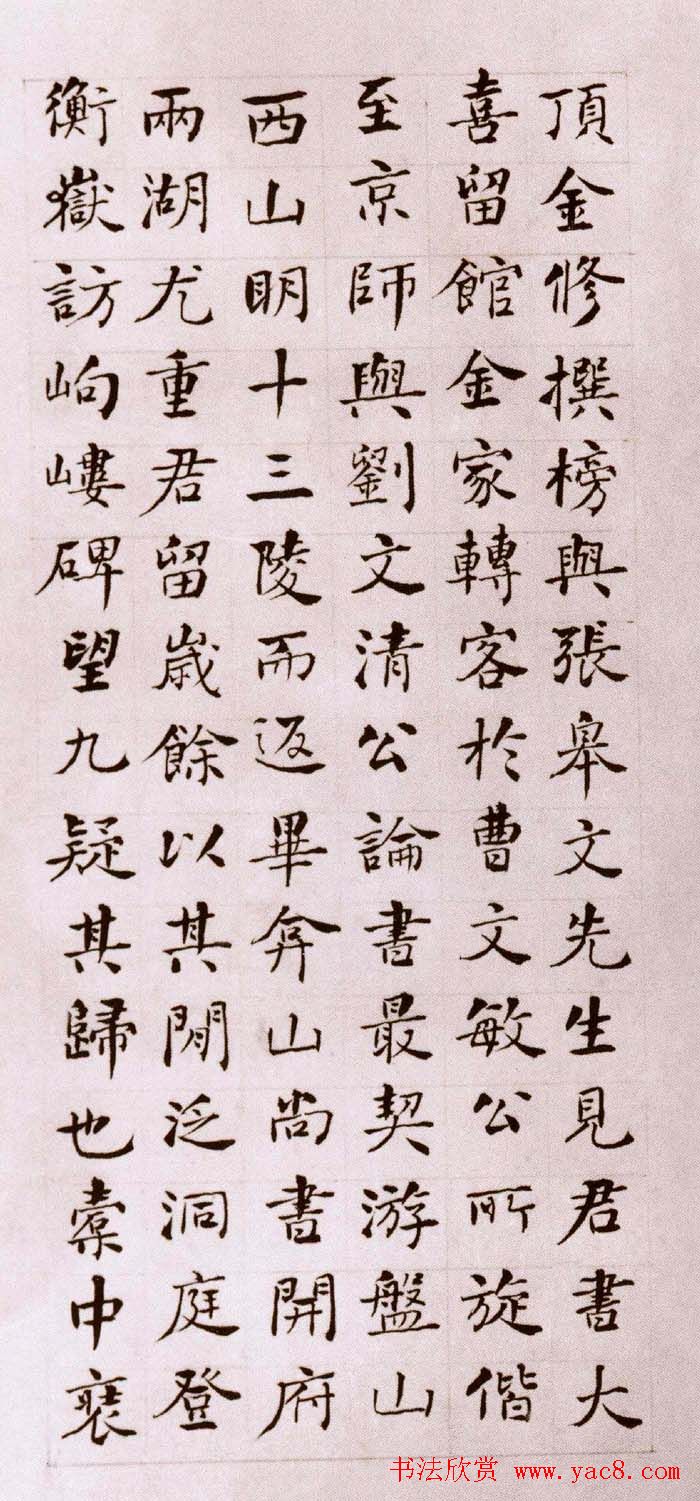 頂金修撰榜與張皋文先生見君書大
喜留館金家轉客於曹文敏公所旋偕
至京師與劉文清公論書最契游盤山
西山明十三陵而返畢弇山尚書開府
兩湖尤重君留歲餘以其閒泛洞庭登
衡嶽訪岣嶁碑望九疑其歸也橐中裝
书法欣赏 www.yac8.com